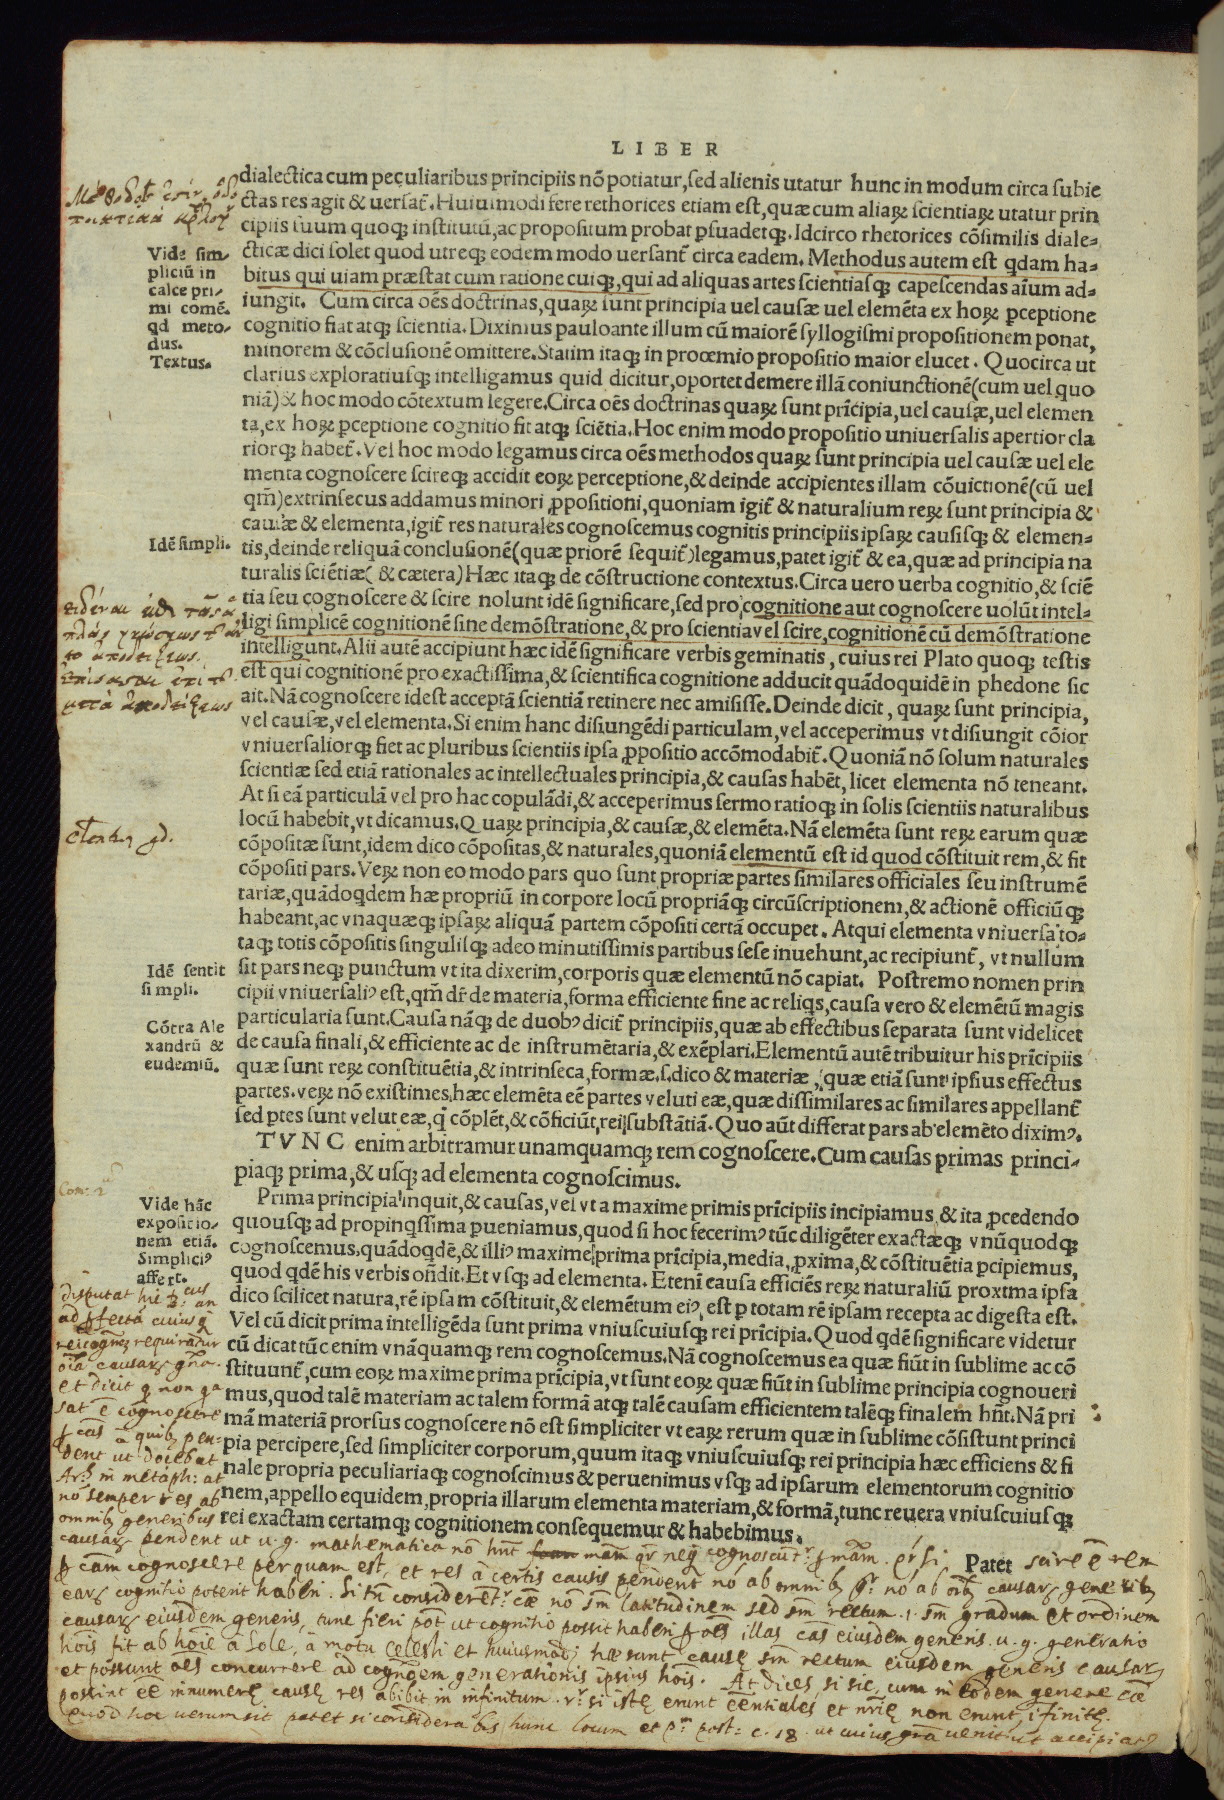 LIBER
dialectica cum peculiaribus principiis nõ potiatur, sed alienis utatur hunc in modum circa subie
ctas res agit & uersat̃. Huiusmodi fere rethorices etiam est, quæ cum aliaꝝ scientiaꝝ utatur prin
cipiis suum quoqꝫ institutũ, ac propositum probat ꝑsuadetqꝫ. Idcirco rhetorices cõsimilis diale-
cticæ dici solet quod utreqꝫ eodem modo uersant̃ circa eadem. Methodus autem est qdam ha-
bitus qui uiam præstat cum ratione cuiqꝫ, qui ad aliquas artes scientiasqꝫ capescendas aĩum ad-
iungit. Cum circa oẽs doctrinas, quaꝝ sunt principia uel causæ uel elemẽta ex hoꝝ ꝑceptione
cognitio fiat atqꝫ scientia. Diximus pauloante illum cũ maiorẽ syllogismi propositionem ponat,
minorem & cõclusionẽ omittere. Statim itaqꝫ in prooemio propositio maior elucet. Quocirca ut
clarius exploratiusqꝫ intelligamus quid dicitur, oportet demere illã coniunctionẽ (cum uel quo
niã) & hoc modo cõtextum legere. Circa oẽs doctrinas quaꝝ sunt prĩcipia, uel causæ, uel elemen
ta, ex hoꝝ ꝑceptione cognitio fit atqꝫ sciẽtia. Hoc enim modo propositio uniuersalis apertior cla
riorqꝫ habet̃. Vel hoc modo legamus circa oẽs methodos quaꝝ sunt principia uel causæ uel ele
menta cognoscere scireqꝫ accidit eoꝝ perceptione, & deinde accipientes illam cõuictionẽ (cũ uel
qm̃) extrinsecus addamus minori ꝓpositioni, quoniam igit̃ & naturalium reꝝ sunt principia &
causæ & elementa, igit̃ res naturales cognoscemus cognitis principiis ipsaꝝ causisqꝫ & elemen-
tis, deinde reliquã conclusionẽ (quæ priorẽ sequit̃) legamus, patet igit̃ & ea, quæ ad principia na
turalis sciẽtiæ ( & cætera) Hæc itaqꝫ de cõstructione contextus. Circa uero uerba cognitio, & sciẽ
tia seu cognoscere & scire nolunt idẽ significare, sed pro cognitione aut cognoscere uolũt intel-
ligi simplicẽ cognitionẽ sine demõstratione, & pro scientia vel scire, cognitionẽ cũ demõstratione
intelligunt. Alii autẽ accipiunt hæc idẽ significare verbis geminatis, cuius rei Plato quoqꝫ testis
est qui cognitionẽ pro exactissima, & scientifica cognitione adducit quãdoquidẽ in phedone sic
ait. Nã cognoscere idest acceptã scientiã retinere nec amisisse. Deinde dicit, quaꝝ sunt principia,
vel causæ, vel elementa. Si enim hanc disiungẽdi particulam, vel acceperimus vt disiungit cõior
vniuersaliorqꝫ fiet ac pluribus scientiis ipsa ꝓpositio accõmodabit̃. Quoniã nõ solum naturales
scientiæ sed etiã rationales ac intellectuales principia, & causas habẽt, licet elementa nõ teneant.
At si eã particulã vel pro hac copulãdi, & acceperimus sermo ratioqꝫ in solis scientiis naturalibus
locũ habebit, vt dicamus. Quaꝝ principia, & causæ, & elemẽta. Nã elemẽta sunt reꝝ earum quæ
cõpositæ sunt, idem dico cõpositas, & naturales, quoniã elementũ est id quod cõstituit rem, & fit
cõpositi pars. Veꝝ non eo modo pars quo sunt propriæ partes similares officiales seu instrumẽ
tariæ, quãdoqdem hæ propriũ in corpore locũ propriãqꝫ circũscriptionem, & actionẽ officiũqꝫ
habeant, ac vnaquæqꝫ ipsaꝝ aliquã partem cõpositi certã occupet. Atqui elementa vniuersa to-
taqꝫ totis cõpositis singulisqꝫ adeo minutissimis partibus sese inuehunt, ac recipiunt̃, vt nullum
sit pars neqꝫ punctum vt ita dixerim, corporis quæ elementũ nõ capiat. Postremo nomen prin
cipii vniuersaliꝰ est, qm̃ dr̃ de materia, forma efficiente fine ac reliqs, causa vero & elemẽtũ magis
particularia sunt. Causa nãqꝫ de duobꝰ dicit̃ principiis, quæ ab effectibus separata sunt videlicet
de causa finali, & efficiente ac de instrumẽtaria, & exẽplari. Elementũ autẽ tribuitur his prĩcipiis
quæ sunt reꝝ constituẽtia, & intrinseca, formæ .s. dico & materiæ, quæ etiã sunt ipsius effectus
partes. veꝝ nõ existimes, hæc elemẽta eẽ partes veluti eæ, quæ dissimilares ac similares appellant̃
sed ptes sunt velut eæ, q̃ cõplẽt, & cõficiũt, rei substãtiã. Quo aũt differat pars ab elemẽto diximꝰ.
TVNC enim arbitramur unamquamqꝫ rem cognoscere. Cum causas primas princi-
piaqꝫ prima, & usqꝫ ad elementa cognoscimus.
Prima principia inquit, & causas, vel vt a maxime primis prĩcipiis incipiamus & ita ꝓcedendo
quousqꝫ ad propinqssima ꝑueniamus, quod si hoc fecerimꝰ tũc diligẽter exactæqꝫ vnũquodqꝫ
cognoscemus, quãdoqdẽ, & illiꝰ maxime prima prĩcipia, media, ꝓxima, & cõstituẽtia ꝑcipiemus,
quod qdẽ his verbis oñdit. Et vsqꝫ ad elementa. Etenĩ causa efficiẽs reꝝ naturaliũ proxtma ipsa
dico scilicet natura, rẽ ipsam cõstituit, & elemẽtum eiꝰ est ꝑ totam rẽ ipsam recepta ac digesta est.
Vel cũ dicit prima intelligẽda sunt prima vniuscuiusqꝫ rei prĩcipia. Quod qdẽ significare videtur
cũ dicat tũc enim vnãquamqꝫ rem cognoscemus. Nã cognoscemus ea quæ fiũt in sublime ac cõ
stituunt̃, cum eoꝝ maxime prima prĩcipia, vt sunt eoꝝ quæ fiũt in sublime principia cognoueri
mus, quod talẽ materiam ac talem formã atqꝫ talẽ causam efficientem talẽqꝫ finalem hñt. Nã pri
mã materiã prorsus cognoscere nõ est simpliciter vt eaꝝ rerum quæ in sublime cõsistunt princi
pia percipere, sed simpliciter corporum, quum itaqꝫ vniuscuiusqꝫ rei principia hæc efficiens & fi
nale propria peculiariaqꝫ cognoscimus & peruenimus vsqꝫ ad ipsarum elementorum cognitio
nem, appello equidem, propria illarum elementa materiam, & formã, tunc reuera vniuscuiusqꝫ
rei exactam certamqꝫ cognitionem consequemur & habebimus.
Patet
Vide sim-
pliciũ in
calce pri-
mi comẽ.
qd meto-
dus.
Textus.
Idẽ simpli.
Idẽ sentit
simpli.
Cõtra Ale
xandrũ &
eudemiũ.
Vide hãc
expositio-
nem etiã.
Simpliciꝰ
affert.
disputat hic
ad
rei cognẽ requirãtur
oĩa causarꝝ gña.
et dicit q non
sat ẽ cognoscere
ꝑ cãs a quibꝫ pen-
dent ut docebat
Ar: in metaph: at
nõ semper res ab
omnibꝫ generibus
causarꝝ pendent ut u. g. mathematica nõ hñt mãm qr neqꝫ cognoscũtr ꝑ mãm.
scire ẽ rem
ꝑ cãm cognoscere per quam est, et res a certis causis pendent nõ ab omnibꝫ
earꝫ cognitio poterit haberi. Si tñ considerẽtr cæ nõ sm̃ latitudinem sed sm̃ rectum .i. sm̃ gradum et ordinem
causarꝝ eiusdem generis, tunc fieri põt ut cognitio possit haberi ꝑ oẽs illas cãs eiusdem generis. u. g. generatio
hoĩs fit ab hoĩe a sole, a motu celesti et huiusmodi; hæ sunt cause sm̃ rectum eiusdem generis causarꝝ
et possunt oẽs concurrere ad cognõem generationis ipsius hoĩs. At dices si sic, cum in eodem genere cæ
possint eẽ innumere cause res abibit in infinitum. rꝰ si iste erunt cẽntiales et nr̃ie non erunt ĩfinite.
quod hoc uerum sit patet si considerabis hunc locum et pm post: c. 18. ut cuius grã uenit ut accipiat